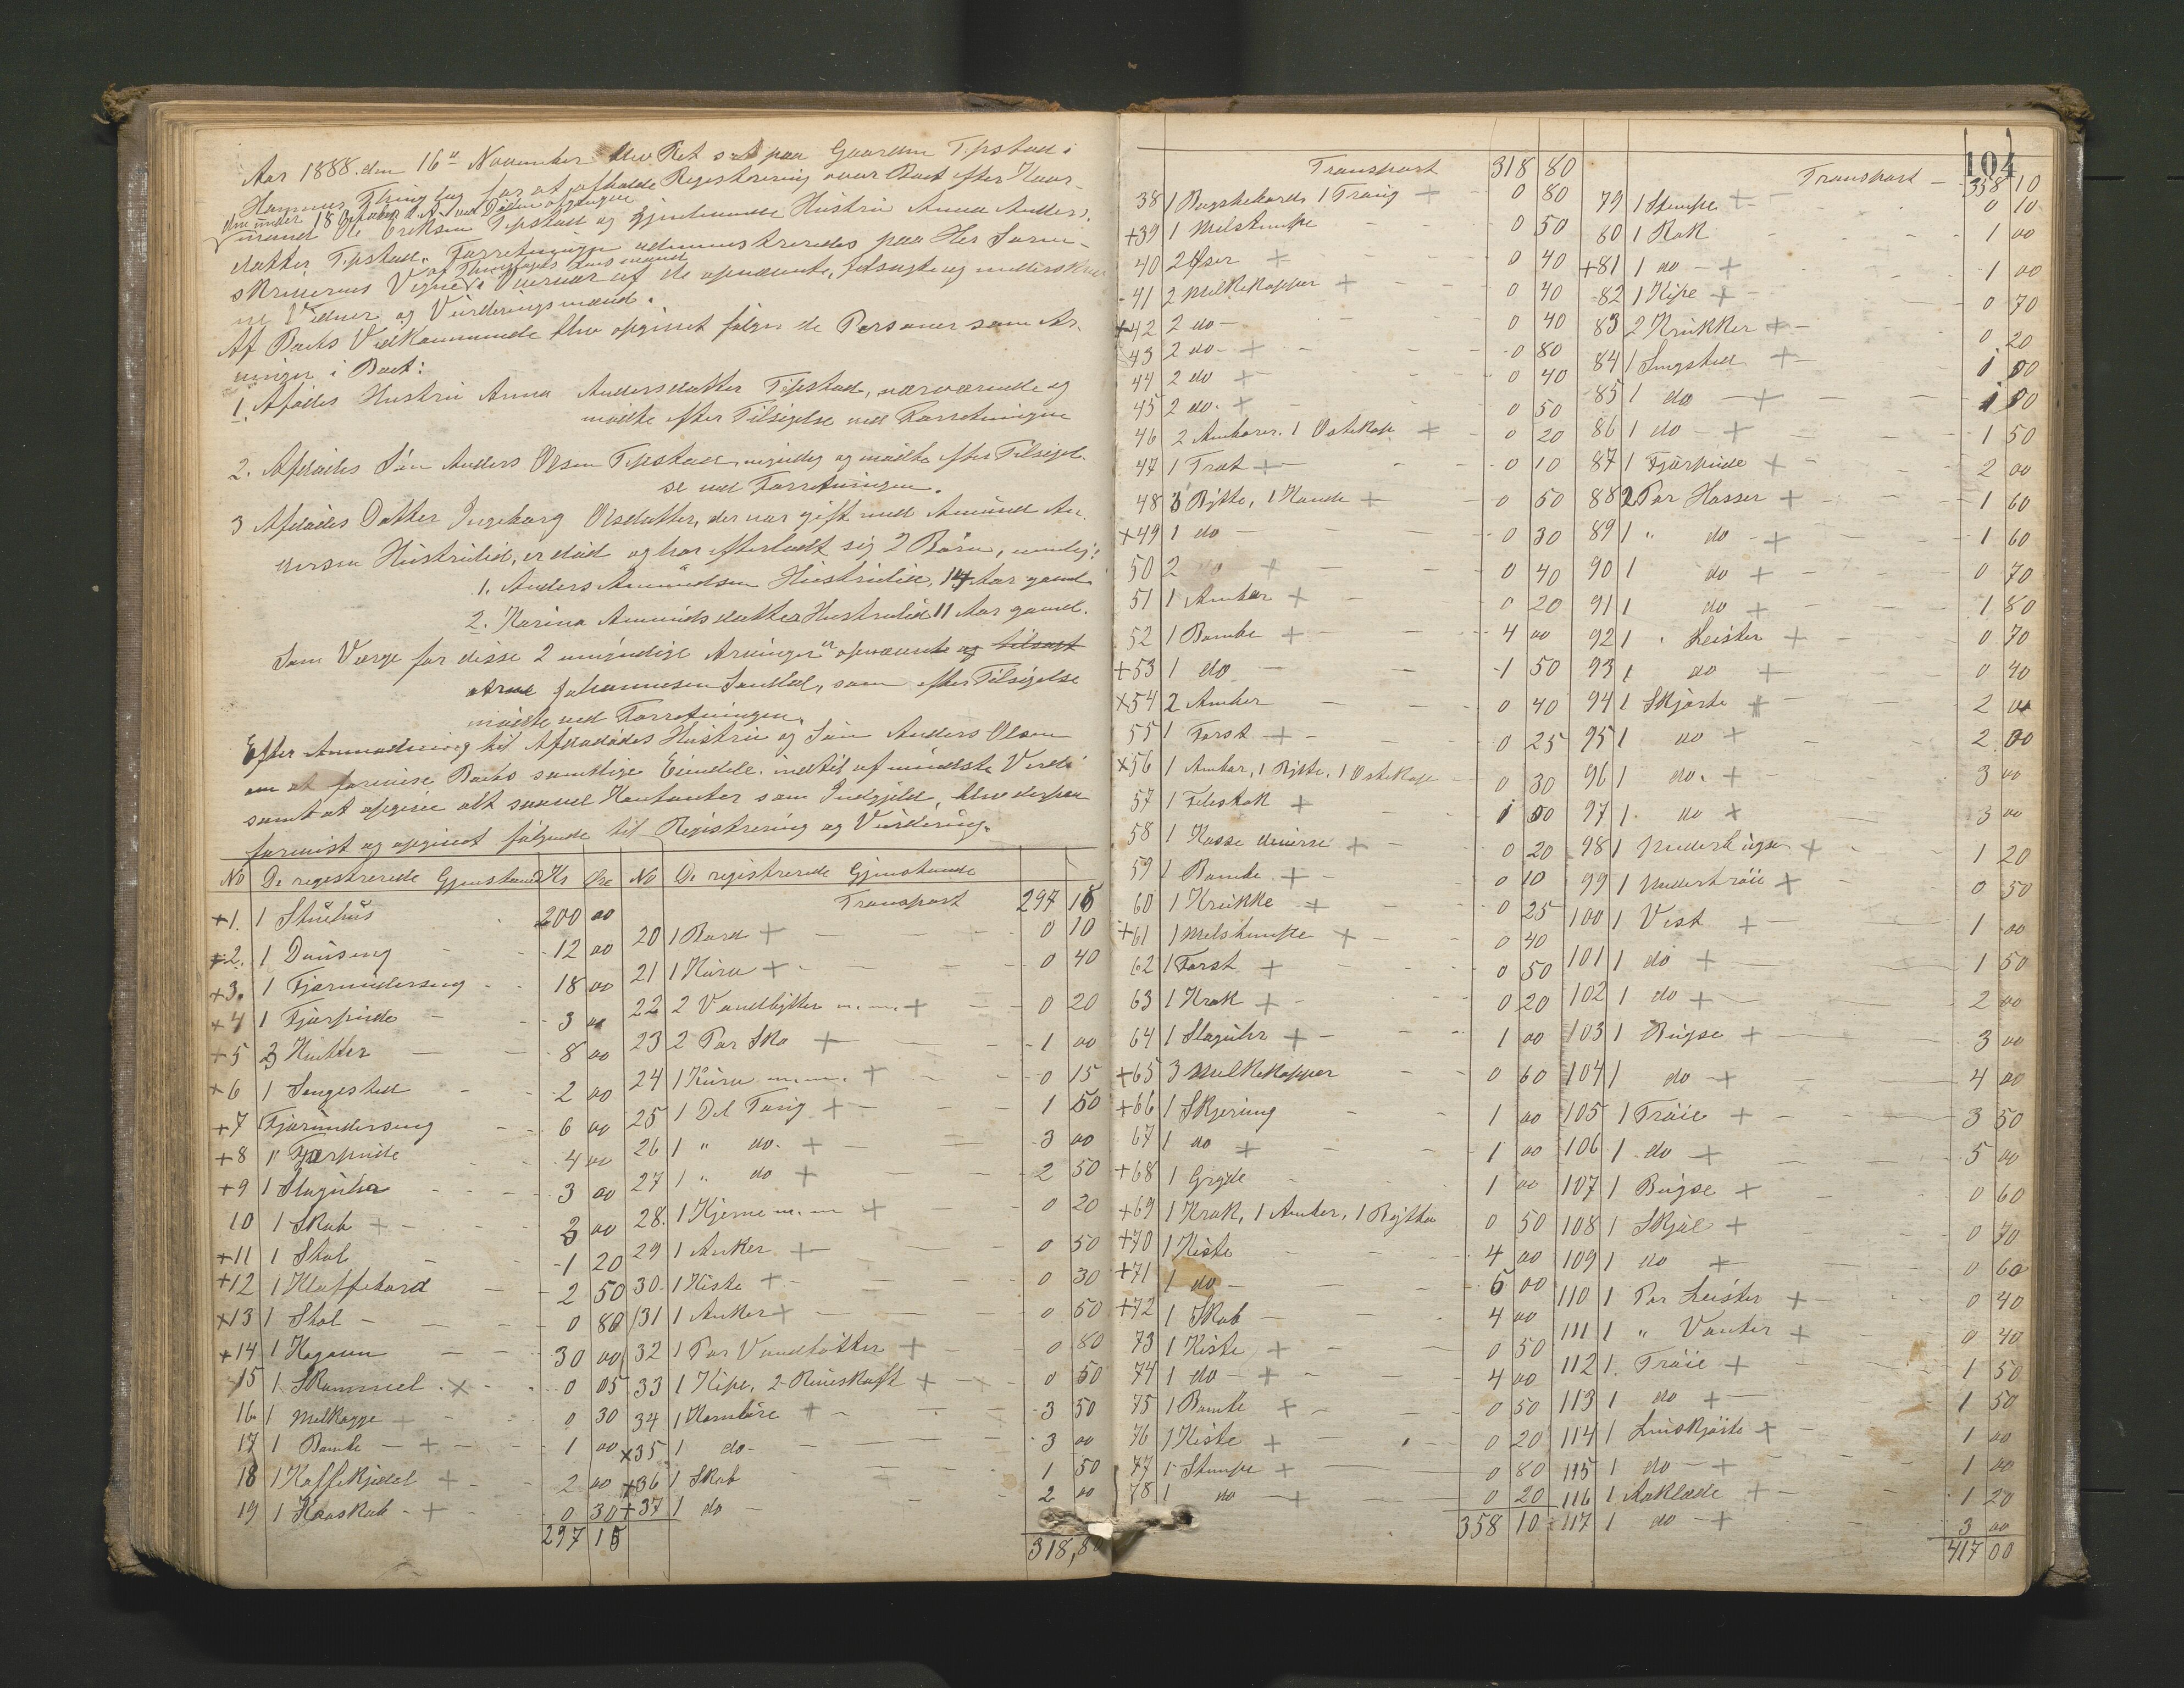 Aar 1888. den 16de November blev Ret sat paa Gaarden Tepstad i
Hammer Thinglag for at afholde Registrering over Boet efter Kaar-
den under 18 Oktober d. A. ved Døden afgangne
mand Ole Eriksen Tepstad og gjenlevende Hustru Anna Anders-
datter Tepstad. Forretningen administreredes paa Hr Soren-
skriverens Vegne
af Thinglagets Lensmand
i Overvær af de opnævnte, tilsagte og underskrev-
ne Vidner og Vurderingsmænd.
Af Boets Vedkommende blev opgivet følgende Personer som Ar-
vinger i Boet:
1. Afdødes Hustru Anna Andersdatter Tepstad, nærværende og
mødte efter Tilsigelse ved Forretningen
2. Afdødes Søn Anders Olsen Tepstad, myndig og mødte efter Tilsigel-
se ved Forretningen.
3 Afdødes Datter Ingeborg Olsdatter, der var gift med Amund An-
dersen Hustrulid, er død og har efterladt sig 2 Børn, nemlig:
1. Anders Amundsen Hustrulid, 14 Aar gamel
2. Karina Amundsdatter Hustrulid 11 Aar gamel.
Som Værge for disse 2 umyndige Arvinger er opnævnt og tilsagt
Johannesen, som efter Tilsigelse
mødte ved Forretningen.
Efter Anmodning til Afdødes Hustru og Søn Anders Olsen
om at forevise Boets samtlige Eiendele indtil af mindste Verdi
samt at opgive alt saavel Kontanter som Indgjeld, blev derpaa
forevist og opgivet følgende til Registrering og Vurdering.
No De registrerede Gjenstande Kr Øre
+1. 1 Stuehus 200 00
+2. 1 Dunseng 12 00
+3. 1 Fjærunderseng 18 00
+4 1 Fjærpude 3 00
+5 3 8 00
+6 1 Sengested 2 00
+7 Fjærunderseng 6 00
+8 1 Fjærpude 4 00
+9 1 Slaguhr 3 00
10 1 Skab + 3 00
+11 1 Stol 1 20
+12 1 Klaffebord 2 50
+13 1 Stol 0 80
+14 1 Kogovn 30 00
15 1 Skammel x 0 05
16 1 Melkagge + 0 30
17 1 Bomte + 1 00
18 1 Kaffekjedel + 2 00
19 1 + 0 30
297 15
No De registrerede Gjenstande
Transport 297 15
20 1 Bord + 0 10
21 1 Kurv + 0 40
22 2 Vandbytter m.m. + 0 20
23 2 Par Sko + 1 00
24 1 Kurv m.m. + 0 15
25 1 Del Tøig + 1 50
26 1 " do. + 3 00
27 1 " do + 2 50
28. 1 Kjerne m.m + 0 20
29 1 Anker + 0 50
30. 1 Kiste + 0 30
31 1 Anker + 0 50
32 1 Par Vandbøtter + 0 80
33 1 Kipe, 2 + 0 50
34 1 + 3 50
x35 1 do 3 00
+36 1 Skab 1 50
+37 1 do 2 00
318,80
104
Transport 318 80
38 1 1 Traug + 0 80
+39 1 Melstampe 0 50
40 2 Øser + 0 40
41 2 Melkekopper + 0 40
+42 2 do 0 40
43 2 do + 0 80
44 2 do + 0 40
45 2 do. + 0 50
46 2 Ambarer. 1 Ostekop + 0 20
47 1 Trat + 0 10
48 3 Bytte, 1 Kande + 0 50
+49 1 do 0 30
50 2 do + 0 40
51 1 Ambar + 0 20
52 1 Bomte + 4 00
+53 1 do 1 50
x54 2 Amber 0 40
55 1 Forst + 0 25
x56 1 Ambar, 1 Bytte, 1 Ostekop 0 30
57 1 Filestok + 1 00
58 1 Kasse diverse + 0 20
59 1 Bomte + 0 10
60 1 Krukke + 0 25
+61 1 Melstampe + 0 40
62 1 Forst + 0 50
63 1 Krak + 0 20
64 1 Slaguhr + 1 00
+65 3 Melkekopper 0 60
+66 1 Skjering 1 00
67 1 do + 1 00
+68 1 Gryde 1 00
+69 1 Krak, 1 Amber, 1 Bytte 0 50
+70 1 Kiste 4 00
+71 1 do 6 00
+72 1 Skab 4 00
73 1 Kiste + 0 50
74 1 do + 4 00
75 1 Bomte + 0 50
76 1 Kiste + 0 20
77 1 Stampe + 0 80
78 1 do + 0 20
358 10
Transport 358 10
79 1 Stampe + 0 10
80 1 Rok 1 00
+81 1 do + 1 00
82 1 Kipe + 0 70
83 2 Krukker + 0 20
84 1 Sengsted + 1 00
85 1 do + 1 00
86 1 do + 1 50
87 1 Fjærpude + 2 00
88 2 Par Hosser + 1 60
89 1 " do + 1 60
90 1 do + 0 70
91 1 do + 1 80
92 1 " Leister + 0 70
93 1 do + 0 40
94 1 Skjorte + 2 00
95 1 do + 2 00
96 1 do. + 3 00
97 1 do + 3 00
98 1 Underbugse + 1 20
99 1 Undertrøie + 0 50
100 1 Vest + 1 00
101 1 do + 1 50
102 1 do + 2 00
103 1 Bugse + 3 00
104 1 do + 4 00
105 1 Trøie + 3 50
106 1 do + 5 00
107 1 Bugse + 0 60
108 1 Skjæl + 0 70
109 1 do + 0 60
110 1 Par Leister + 0 40
111 1 " Vanter + 0 40
112 1. Trøie + 1 50
113 1 do + 1 50
114 1 + 1 00
115 1 do + 1 00
116 1 Aaklæde + 1 20
117 1 do + 3 00
417 00